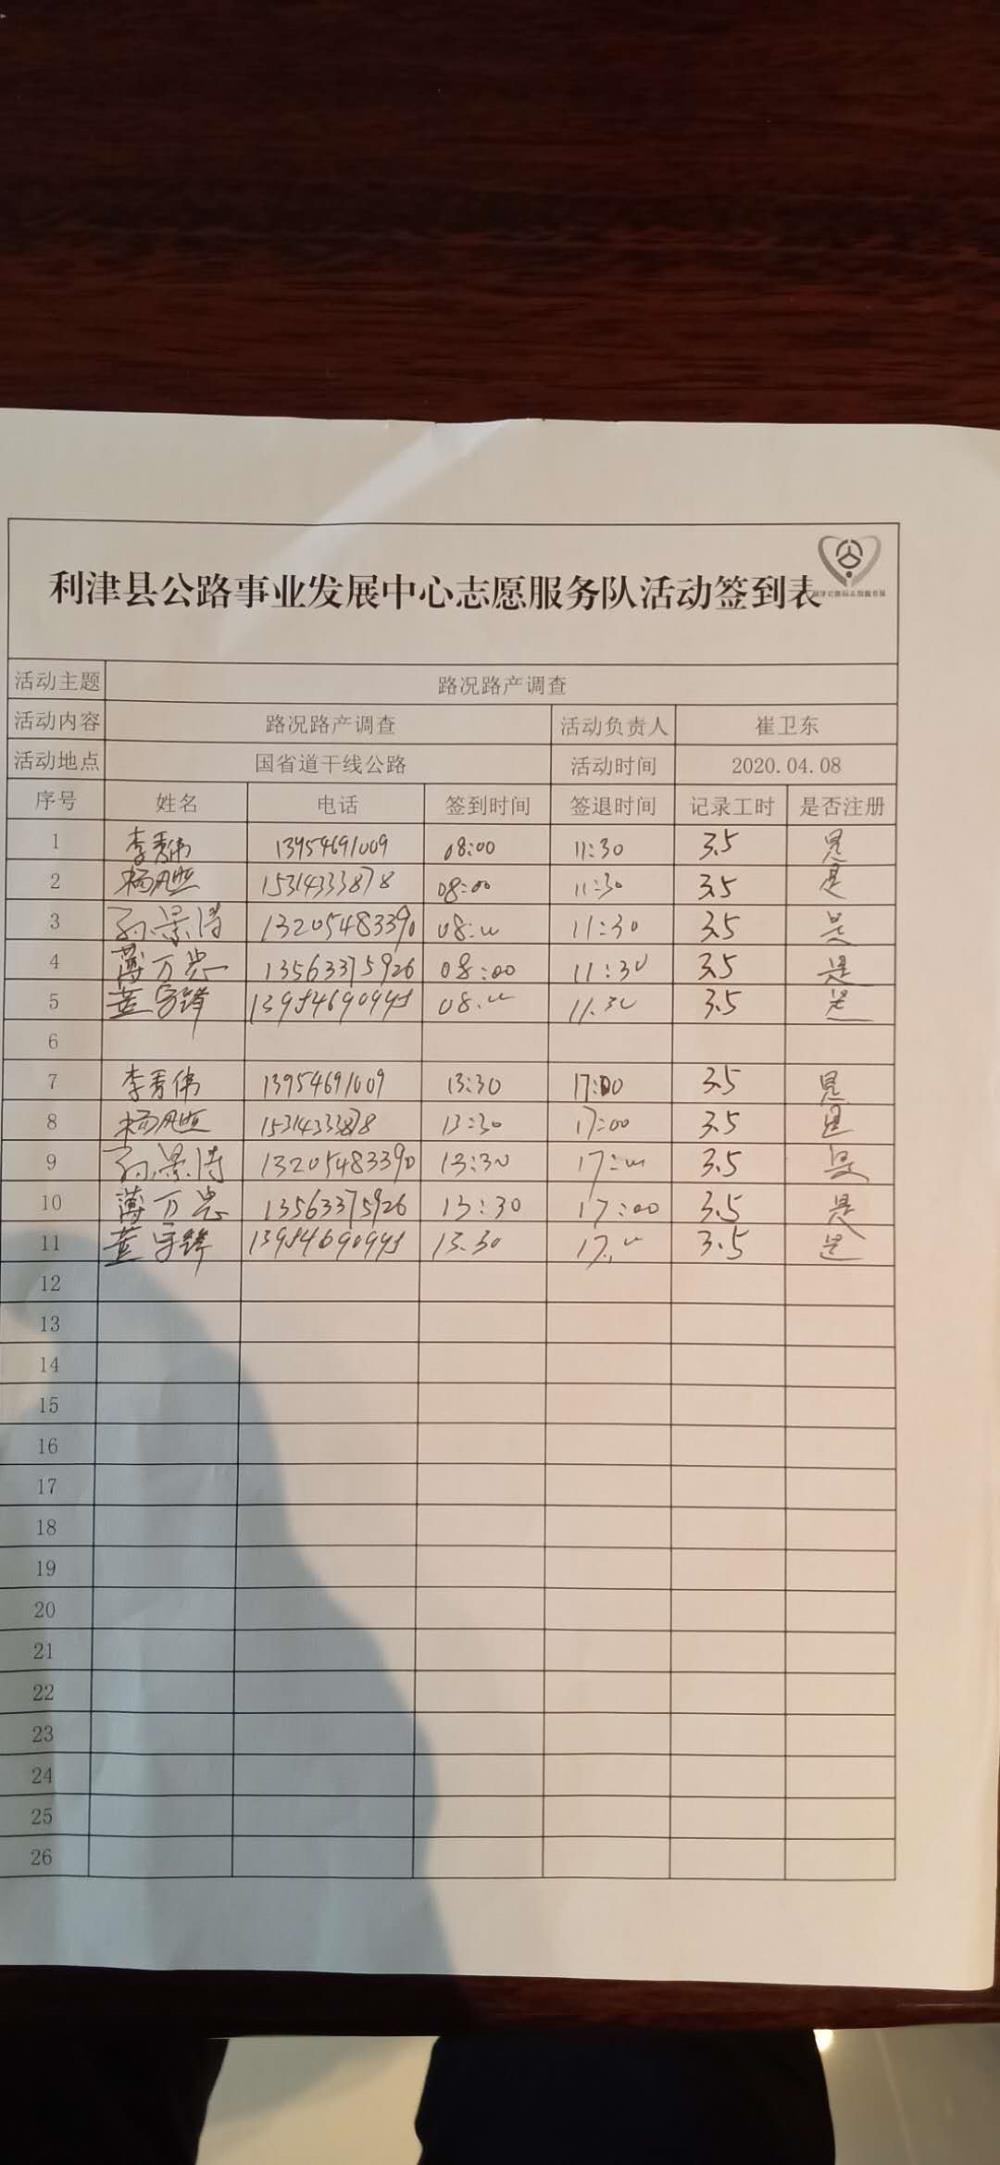 利津县公路事业发展中心志愿服务队活动签到表
活动主题 路况路产调查
活动内容 路况路产调查 活动负责人 崔卫东
活动地点 国省道干线公路 活动时间 2020.04.08
序号 姓名 电话 签到时间 签退时间 记录工时 是否注册
1 李秀伟 13954691009 08:00 11:30 3.5 是
2 杨 15314333878 08:00 11:30 3.5 是
3 孙景涛 13205483390 08:00 11:30 3.5 是
4 薄万忠 13563375926 08:00 11:30 3.5 是
5 董守锋 13954690995 08:00 11.30 3.5 是
6
7 李秀伟 13954691009 13:30 17:00 3.5 是
8 杨 15314333878 13:30 17:00 3.5 是
9 孙景涛 13205483390 13:30 17:00 3.5 是
10 薄万忠 13563375926 13:30 17:00 3.5 是
11 董守锋 13954690995 13.30 17:00 3.5 是
12
13
14
15
16
17
18
19
20
21
22
23
24
25
26